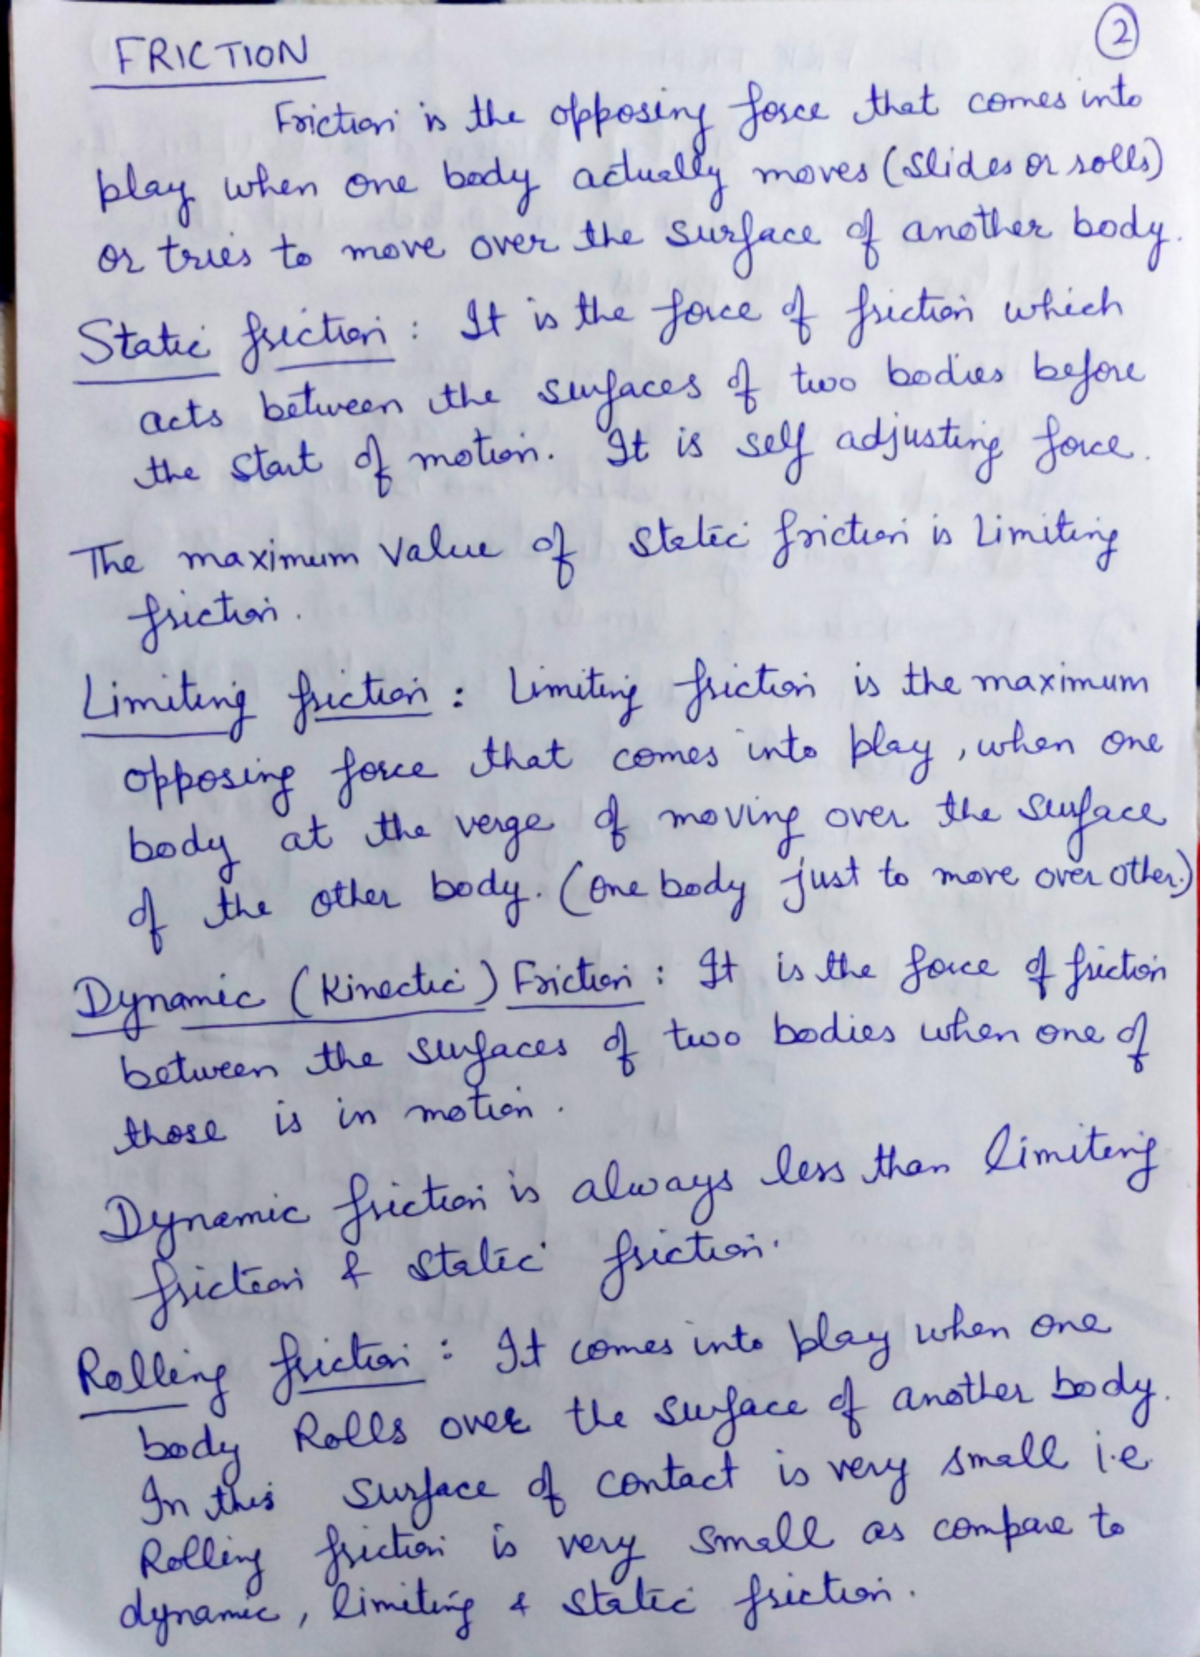 FRICTION
2
Friction is the opposing force that comes into
play when one body actually moves (slides or rolls)
or tries to move over the surface of another body.
Static friction : It is the force of friction which
acts between the surfaces of two bodies before
the start of motion. It is self adjusting force.
The maximum value of static friction is Limiting
friction.
Limiting friction : Limiting friction is the maximum
opposing force that comes into play, when one
body at the verge of moving over the surface
of the other body. (One body just to move over other.)
Dynamic (Kinectic) Friction : It is the force of friction
between the surfaces of two bodies when one of
those is in motion.
Dynamic friction is always less than limiting
friction & static friction.
Rolling friction : It comes into play when one
body Rolls over the surface of another body.
In this surface of contact is very small i.e
Rolling friction is very small as compare to
dynamic, limiting & static friction.